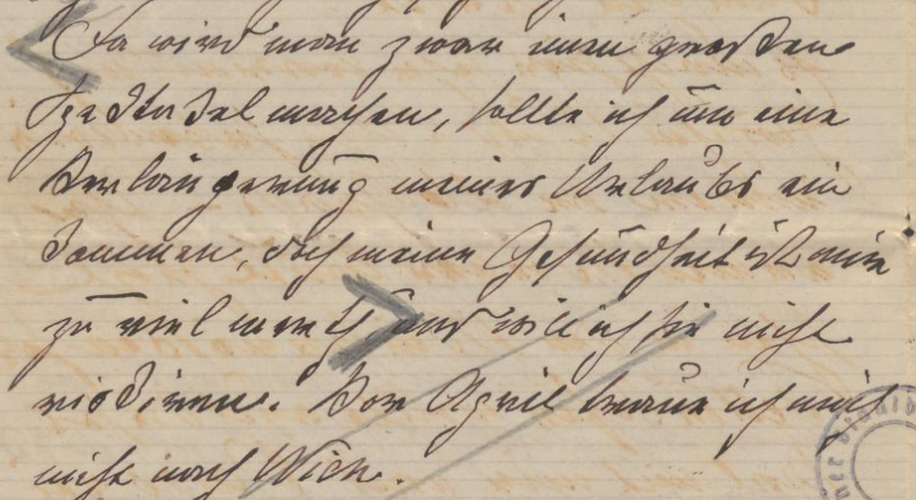 Da wird man zwar einen großen
Spektakel machen, sollte ich um eine
Verlängerung meines Urlaubs ein
kommen, doch meine Gesundheit ist mir
zu viel werth und will ich sie nicht
riskiren. Vor April traue ich mich
nicht nach Wien.